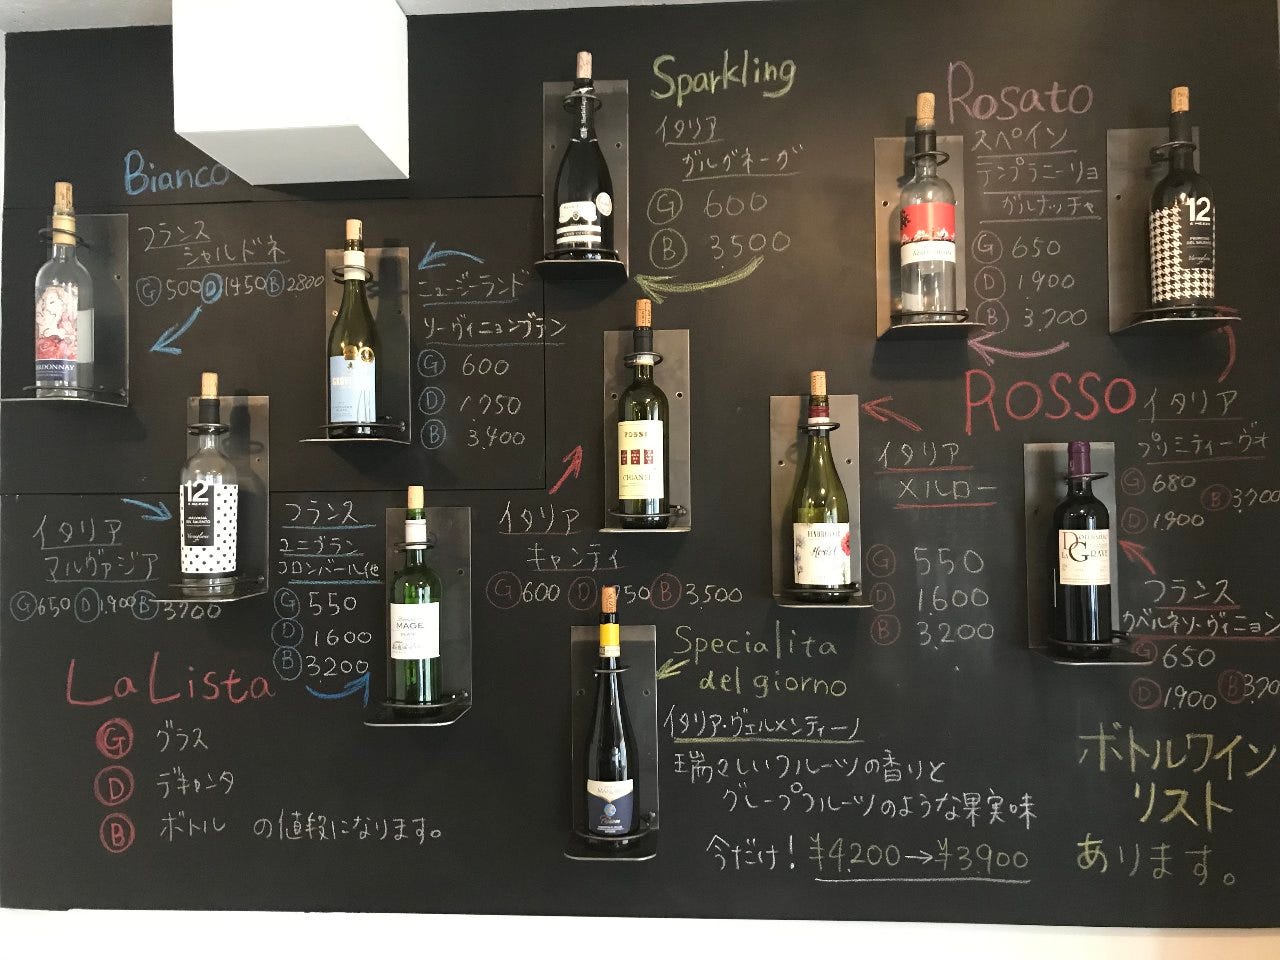 Bianco
フランス
シャルドネ
G 500 D 1450 B 2800
ニュージーランド
ソーヴィニョンブラン
G 600
D 1.750
B 3.400
イタリア
マルヴァジア
G 650 D 1.900 B 3700
フランス
ユニブラン
コロンバール他
G 550
D 1600
B 3200
Sparkling
イタリア
ガルガネーガ
G 600
B 3.500
Rosato
スペイン
テンプラニーリョ
ガルナッチャ
G 650
D 1.900
B 3.700
ROSSO
イタリア
キャンティ
G 600 D 1750 B 3.500
イタリア
メルロー
G 550
D 1600
B 3.200
イタリア
プリミティーヴォ
G 680
D 1.900 B 3.700
フランス
カベルネソーヴィニョン
G 650
D 1.900 B 3.70
La Lista
G グラス
D デキャンタ
B ボトル の値段になります。
Specialita
del giorno
イタリア・ヴェルメンティーノ
瑞々しいフルーツの香りと
グレープフルーツのような果実味
今だけ! ¥4.200→¥3.900
ボトルワイン
リスト
あります。
RDONNAY
12
12
MAGE
Merlot
DG
GRAVE